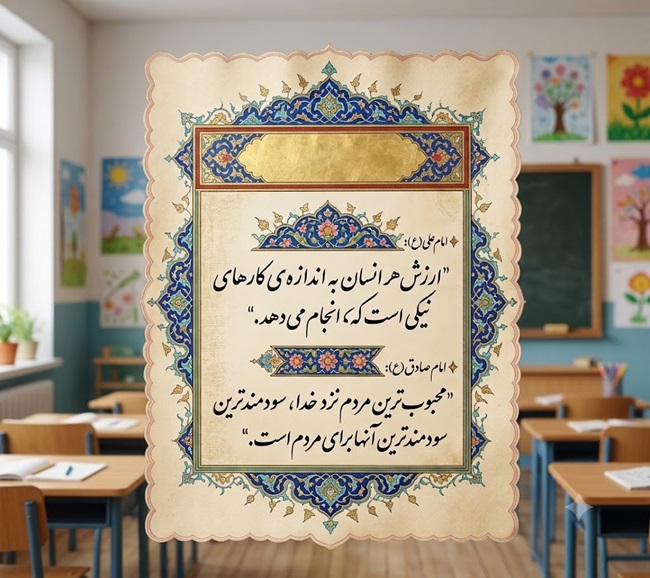 امام علی (ع):
"ارزش هر انسان به اندازه‌ی کارهای
نیکی است که، انجام می‌دهد."
امام صادق (ع):
"محبوب‌ترین مردم نزد خدا، سودمندترین
سودمندترین آنها برای مردم است."